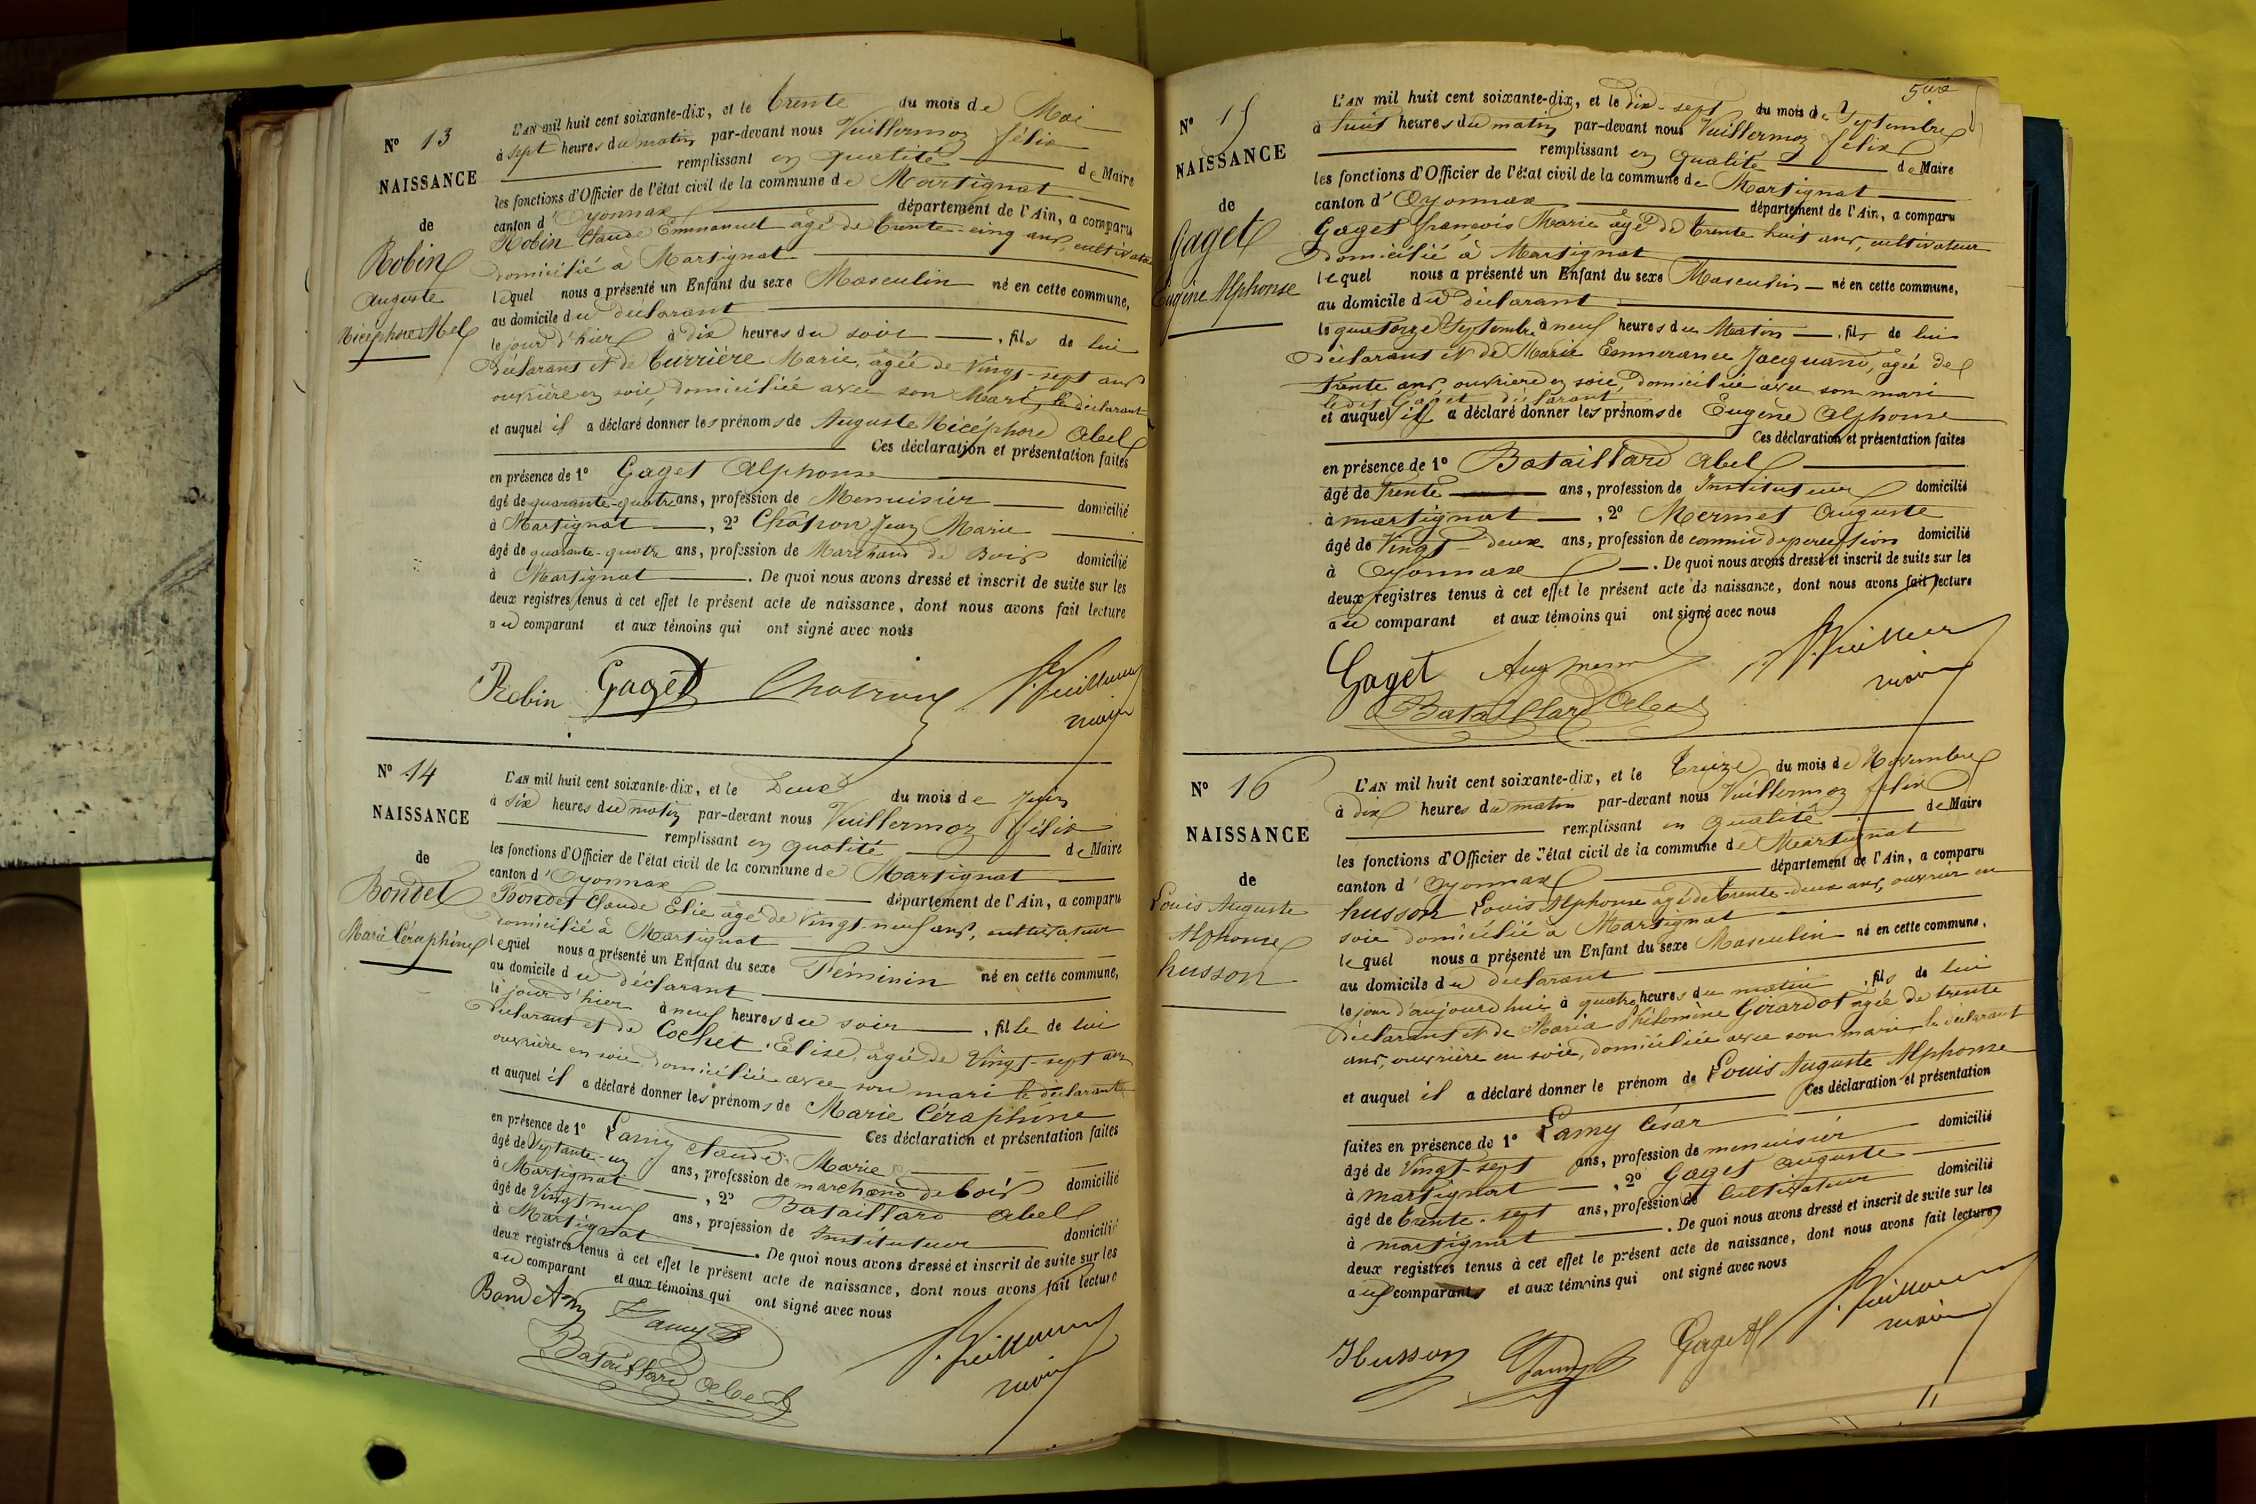 N° 13
NAISSANCE
de
Robin
Auguste
Nicéphore Abel
L'AN mil huit cent soixante-dix, et le trente du mois de Mai
à sept heures du matin par-devant nous Vuillermoz félix
remplissant en qualité de Maire
les fonctions d'Officier de l'état civil de la commune de Martignat
canton d'Oyonnax département de l'Ain, a comparu
Robin Claude Emmanuel agé de trente-cinq ans, cultivateur
domicilié à Martignat
lequel nous a présenté un Enfant du sexe Masculin né en cette commune,
au domicile du déclarant
le jour d'hier à dix heures du soir , fils de lui
Déclarant et de Curriére Marie, agée de Vingt-sept ans
ouvrière en soie, domiciliée avec son Mari, le déclarant
et auquel il a déclaré donner les prénoms de Auguste Nicéphore Abel
Ces déclaration et présentation faites
en présence de 1° Gaget Alphonse
âgé de quarante-quatre ans, profession de Menuisier domicilié
à Martignat , 2° Chatron Jean Marie
âgé de quarante-quatre ans, profession de Marchand de Bois domicilié
à Martignat . De quoi nous avons dressé et inscrit de suite sur les
deux registres tenus à cet effet le présent acte de naissance, dont nous avons fait lecture
au comparant et aux témoins qui ont signé avec nous
Robin Gaget Chatron
maire
N° 14
NAISSANCE
de
Bondet
Marie Céraphine
L'AN mil huit cent soixante-dix, et le Deux du mois de Juin
à six heures du matin par-devant nous Vuillermoz félix
remplissant en qualité de Maire
les fonctions d'Officier de l'état civil de la commune de Martignat
canton d'Oyonnax département de l'Ain, a comparu
Bondet Claude Elie âgé de Vingt-neuf ans, cultivateur
domicilié à Martignat
lequel nous a présenté un Enfant du sexe Féminin né en cette commune,
au domicile du déclarant
le jour d'hier à neuf heures du soir , fille de lui
déclarant et de Cochet Elise, agée de Vingt-sept ans
ouvrière en soie domiciliée avec son mari le déclarant
et auquel il a déclaré donner les prénoms de Marie Céraphine
Ces déclaration et présentation faites
en présence de 1° Lamy Claude Marie
âgé de ans, profession de marchand de bois domicilié
à Martignat , 2° Bataillard Abel
âgé de Vingt neuf ans, profession de Instituteur domicilié
à Martignat . De quoi nous avons dressé et inscrit de suite sur les
deux registres tenus à cet effet le présent acte de naissance, dont nous avons fait lecture
au comparant et aux témoins qui ont signé avec nous
Bondet Lamy
Bataillard Abel
maire
N° 15
NAISSANCE
de
Gaget
Eugène Alphonse
L'AN mil huit cent soixante-dix, et le dix-sept du mois de Septembre
à huit heures du matin par-devant nous Vuillermoz félix
remplissant en qualité de Maire
les fonctions d'Officier de l'état civil de la commune de Martignat
canton d'Oyonnax département de l'Ain, a comparu
Gaget françois Marie âgé de trente huit ans, cultivateur
domicilié à Martignat
lequel nous a présenté un Enfant du sexe Masculin né en cette commune,
au domicile du déclarant
le quatorze Septembre à neuf heures du Matin , fils de lui
Déclarant et de Marie Emmerance Jacquand, agée de
trente ans, ouvrière en soie, domiciliée avec son mari
ledit Gaget déclarant
et auquel il a déclaré donner les prénoms de Eugène Alphonse
Ces déclaration et présentation faites
en présence de 1° Bataillard Abel
âgé de trente ans, profession de Instituteur domicilié
à martignat , 2° Mermet Auguste
âgé de Vingt-deux ans, profession de commis de perception domicilié
à Oyonnax . De quoi nous avons dressé et inscrit de suite sur les
deux registres tenus à cet effet le présent acte de naissance, dont nous avons fait lecture
au comparant et aux témoins qui ont signé avec nous
Gaget
Bataillard Abel
maire
N° 16
NAISSANCE
de
Louis Auguste
Alphonse
husson
L'AN mil huit cent soixante-dix, et le Treize du mois de Novembre
à dix heures du matin par-devant nous Vuillermoz félix
remplissant en qualité de Maire
les fonctions d'Officier de l'état civil de la commune de Martignat
canton d'Oyonnax département de l'Ain, a comparu
husson Louis Alphonse agé de trente-deux ans, ouvrier en
soie domicilié à Martignat
lequel nous a présenté un Enfant du sexe Masculin né en cette commune,
au domicile du déclarant
le jour d'aujourd'hui à quatre heures du matin , fils de lui
Déclarant et de Maria Philomène Girardot agée de trente
ans, ouvrière en soie, domiciliée avec son mari le déclarant
et auquel il a déclaré donner le prénom de Louis Auguste Alphonse
Ces déclaration et présentation
faites en présence de 1° Lamy César
âgé de Vingt-sept ans, profession de menuisier domicilié
à martignat , 2° Gaget Auguste
âgé de trente-sept ans, profession de Cultivateur domicilié
à martignat . De quoi nous avons dressé et inscrit de suite sur les
deux registres tenus à cet effet le présent acte de naissance, dont nous avons fait lecture
au comparant et aux témoins qui ont signé avec nous
Husson Lamy Gaget
maire